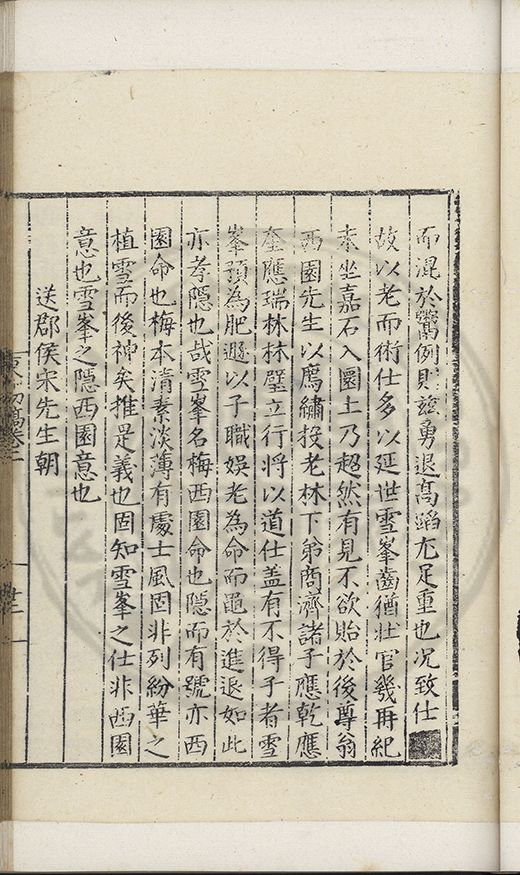 而混於鬻例則茲勇退高蹈尤足重也况致仕
故以老而術仕多以延世雪峯齒猶壯官幾再紀
未坐嘉石入圜土乃超然有見不欲貽於後尊翁
西園先生以廌繡投老林下弟商濟諸子應乾應
奎應瑞林林壁立行將以道仕盖有不得于者雪
峯預為肥遯以子職娱老為命而黽於進退如此
亦孝隱也哉雪峯名梅西園命也隱而有號亦西
園命也梅本清素淡薄有處士風固非列紛華之
植雪而後神矣推是義也固知雪峯之仕非西園
意也雪峯之隱西園意也
送郡侯宋先生朝
初稿卷二